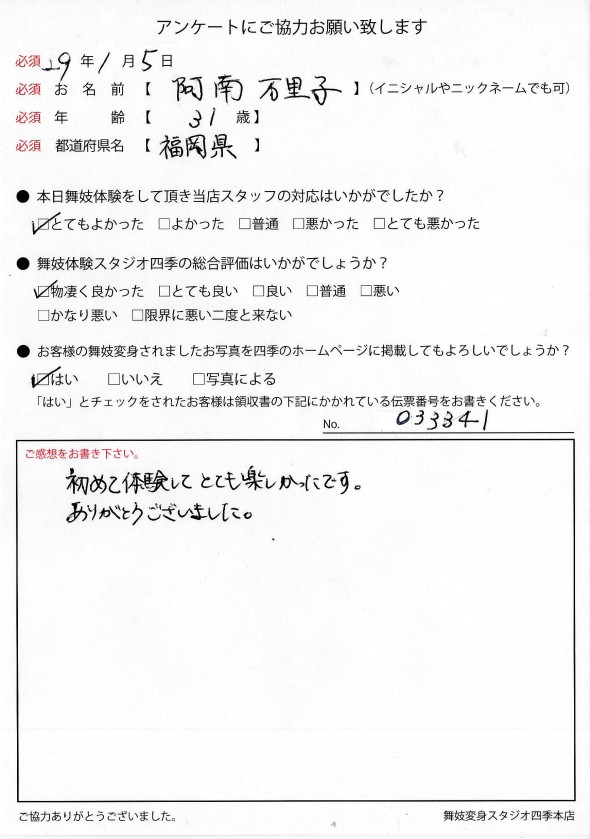 アンケートにご協力お願い致します
必須 29年1月5日
必須 お名前【 阿南 万里子 】(イニシャルやニックネームでも可)
必須 年齢【 31 歳】
必須 都道府県名【 福岡県 】
● 本日舞妓体験をして頂き当店スタッフの対応はいかがでしたか?
☑とてもよかった □よかった □普通 □悪かった □とても悪かった
● 舞妓体験スタジオ四季の総合評価はいかがでしょうか?
☑物凄く良かった □とても良い □良い □普通 □悪い
□かなり悪い □限界に悪い二度と来ない
● お客様の舞妓変身されましたお写真を四季のホームページに掲載してもよろしいでしょうか?
☑はい □いいえ □写真による
「はい」とチェックをされたお客様は領収書の下記にかかれている伝票番号をお書きください。
No. 033341
ご感想をお書き下さい。
初めて体験してとても楽しかったです。
ありがとうございました。
ご協力ありがとうございました。 舞妓変身スタジオ四季本店